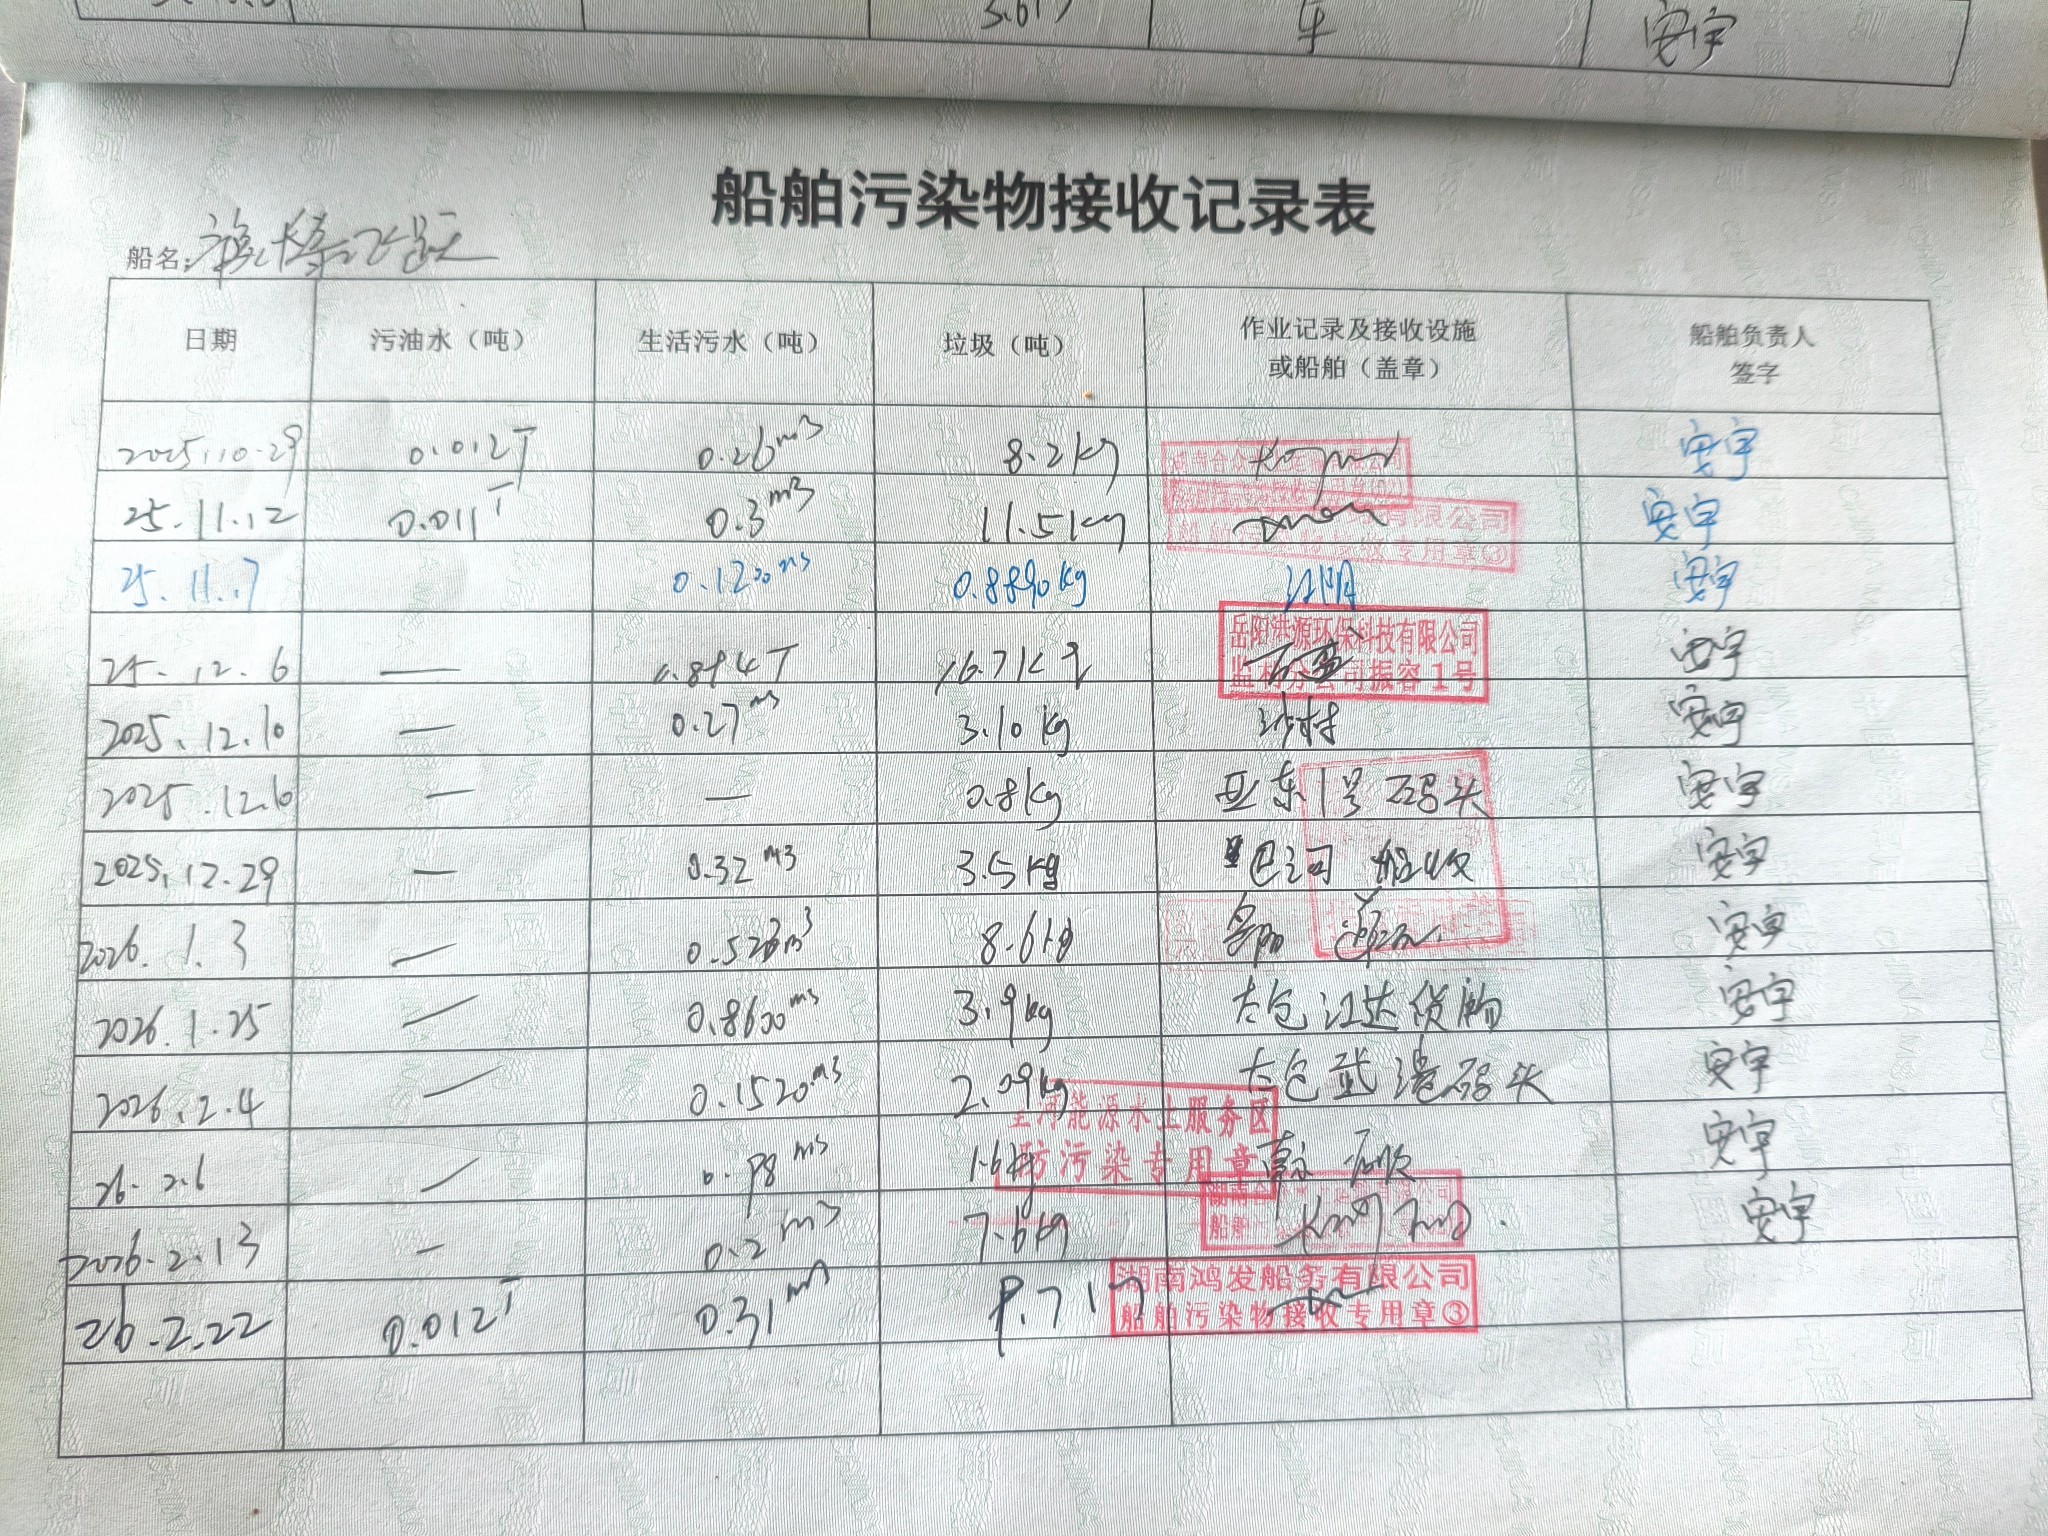 安宇
船舶污染物接收记录表
船名:
日期 污油水（吨） 生活污水（吨） 垃圾（吨） 作业记录及接收设施或船舶（盖章） 船舶负责人签字
2025.10.29 0.012T 0.26m3 8.2kg 安宇
25.11.12 0.011T 0.3m3 11.5kg 有限公司 船舶污染物接收专用章③ 安宇
25.11.7 0.1200m3 0.8890kg 安宇
25.12.6 — 16.7kg 岳阳洪源环保科技有限公司 分公司振容1号 安宇
2025.12.10 — 0.27m3 3.10kg 安宇
2025.12.10 — — 0.8kg 亚东1号码头 安宇
2025.12.29 — 0.32m3 3.5kg 巴河 船收 安宇
2026.1.3 — 8.6kg 安宇
2026.1.25 — 0.8600m3 3.9kg 太仓江达货船 安宇
2026.2.4 — 0.1520m3 2.09kg 太仓武港码头 安宇
26.2.6 — 0.98m3 1.6kg 河能源水上服务区 防污染专用章 安宇
2026.2.13 — 0.2m3 7.6kg 船舶 安宇
26.2.22 0.012T 0.31m3 湖南鸿发船务有限公司 船舶污染物接收专用章③